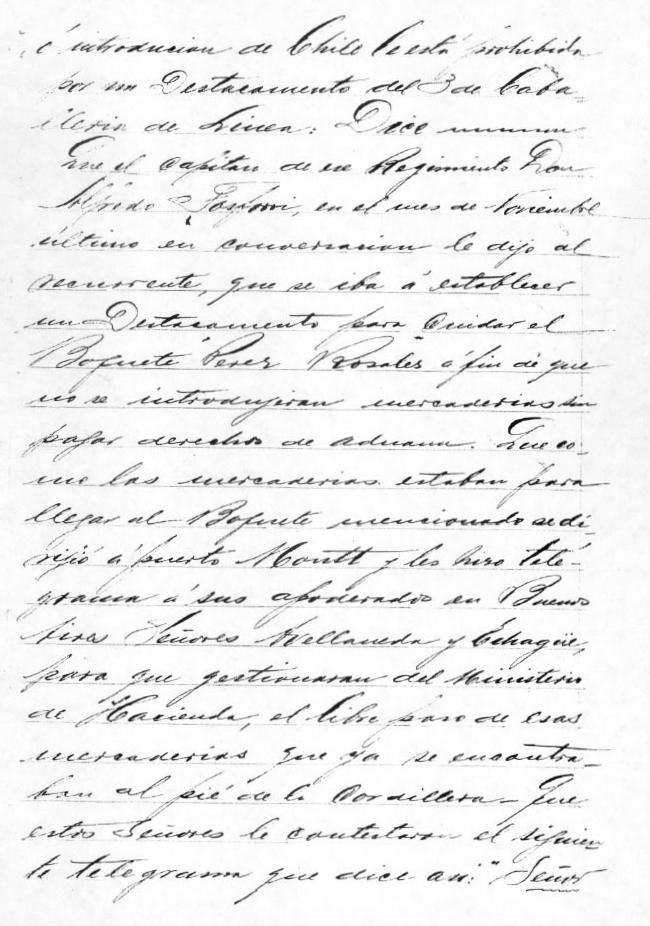 é introducion de Chile le está prohibida
por un Destacamento del 3 de Caba-
lleria de Linea: Dice
Que el capitan de ese Regimiento Don
Alfredo en el mes de Noviembre
último en conversacion le dijo al
recurrente, que se iba á establecer
un Destacamento para cuidar el
Boquete "Perez Rosales" á fin de que
no se introdujeran mercaderias sin
pagar derechos de aduana. Que co-
mo las mercaderias estaban para
llegar al Boquete mencionado se di-
rijió á puerto Montt y les hizo telé-
grama á sus apoderados en Buenos
Aires Señores Avellaneda y Echagüe,
para que gestionaran del Ministerio
de Hacienda, el libre paso de esas
mercaderias que ya se encontra-
ban al pié de la Cordillera - Que
estos Señores le contestaron el siguien
te telegrama que dice asi: "Señor